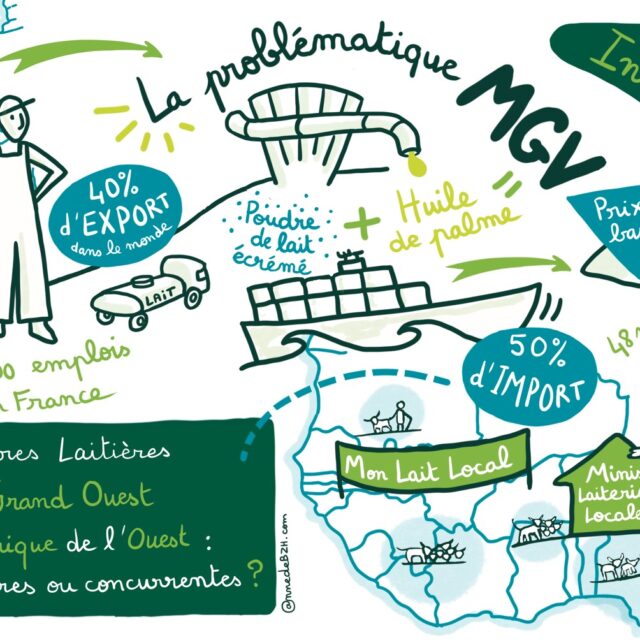 La problématique
MGV
In
40%
d'EXPORT
dans le monde
Poudre
de lait
écrémé
+
Huile
de palme
Prix
ba
LAIT
00 emplois
n France
50%
d'IMPORT
48
Mon Lait Local
Minis
Laiterie
Locale
res Laitières
Grand Ouest
ique de l'Ouest :
res ou concurrentes ?
@annedeBZH.com